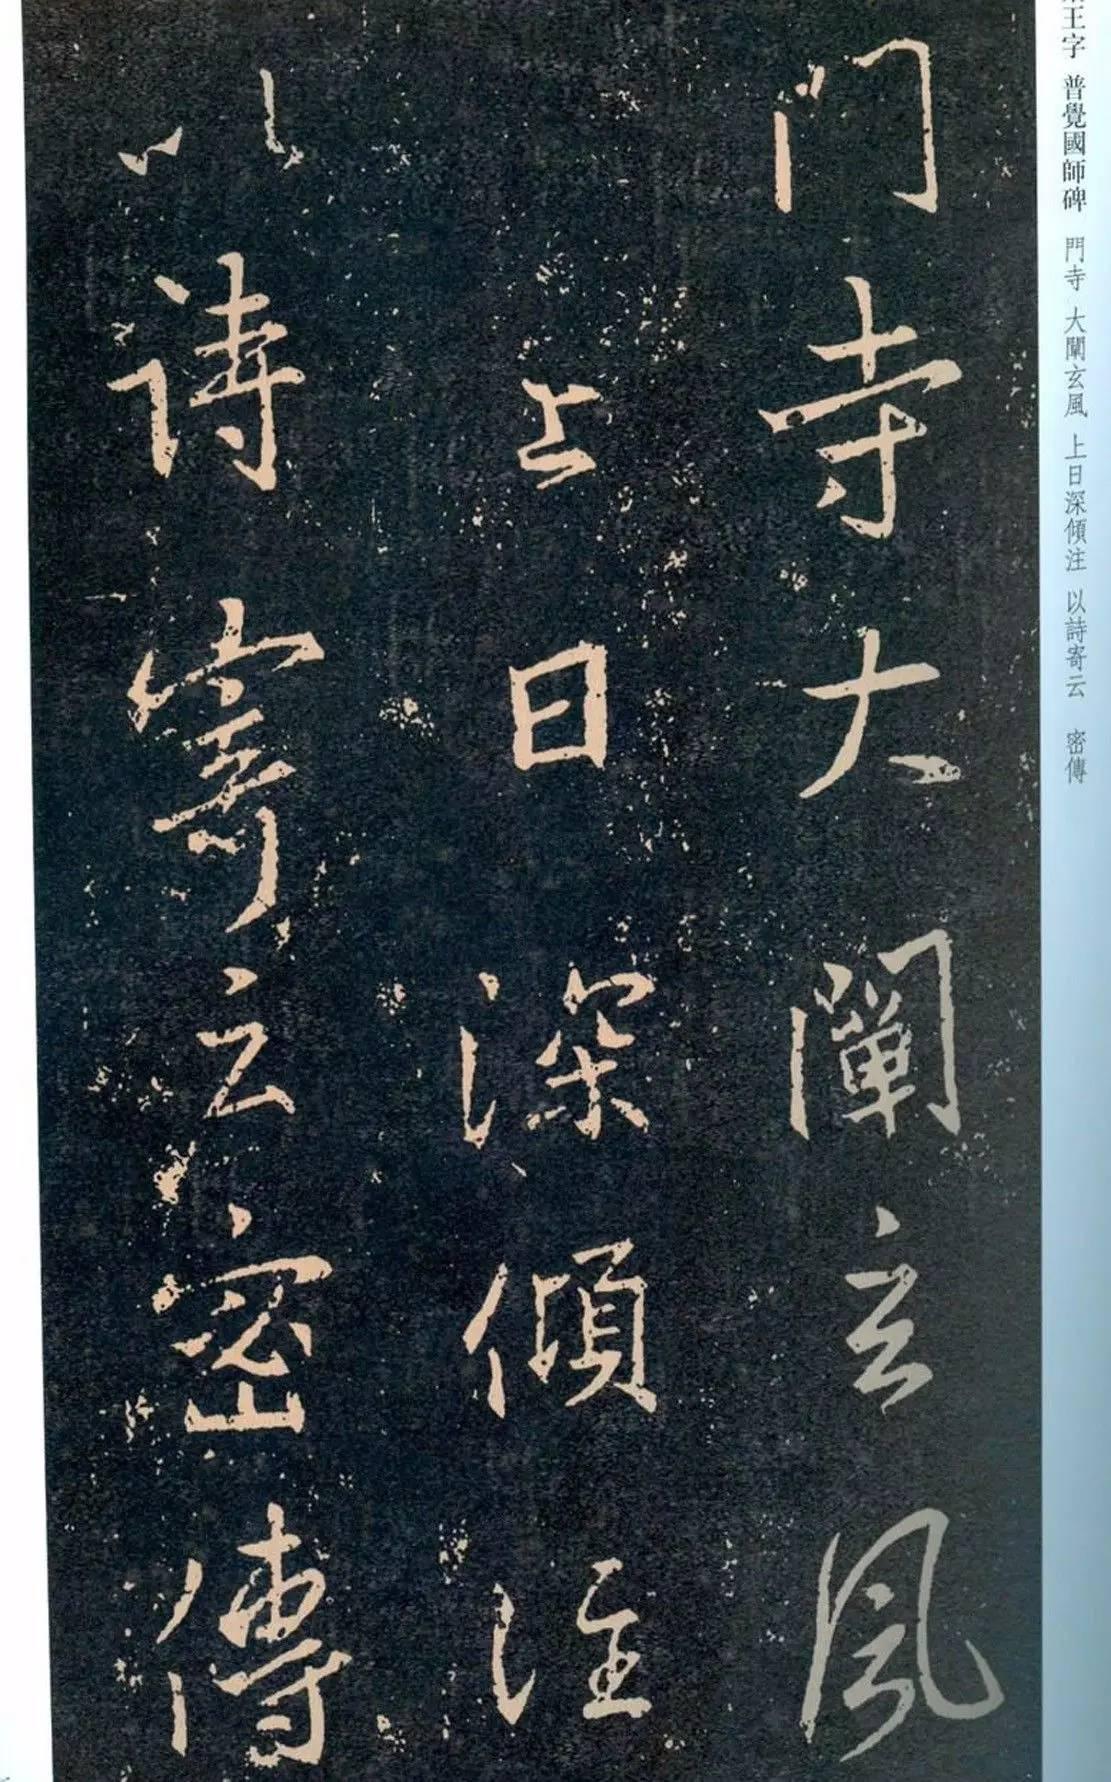 王字 普覺國師碑 門寺 大闡玄風 上日深傾注 以詩寄云 密傳
門寺大闡玄風
上日深傾注
以詩寄云密傳